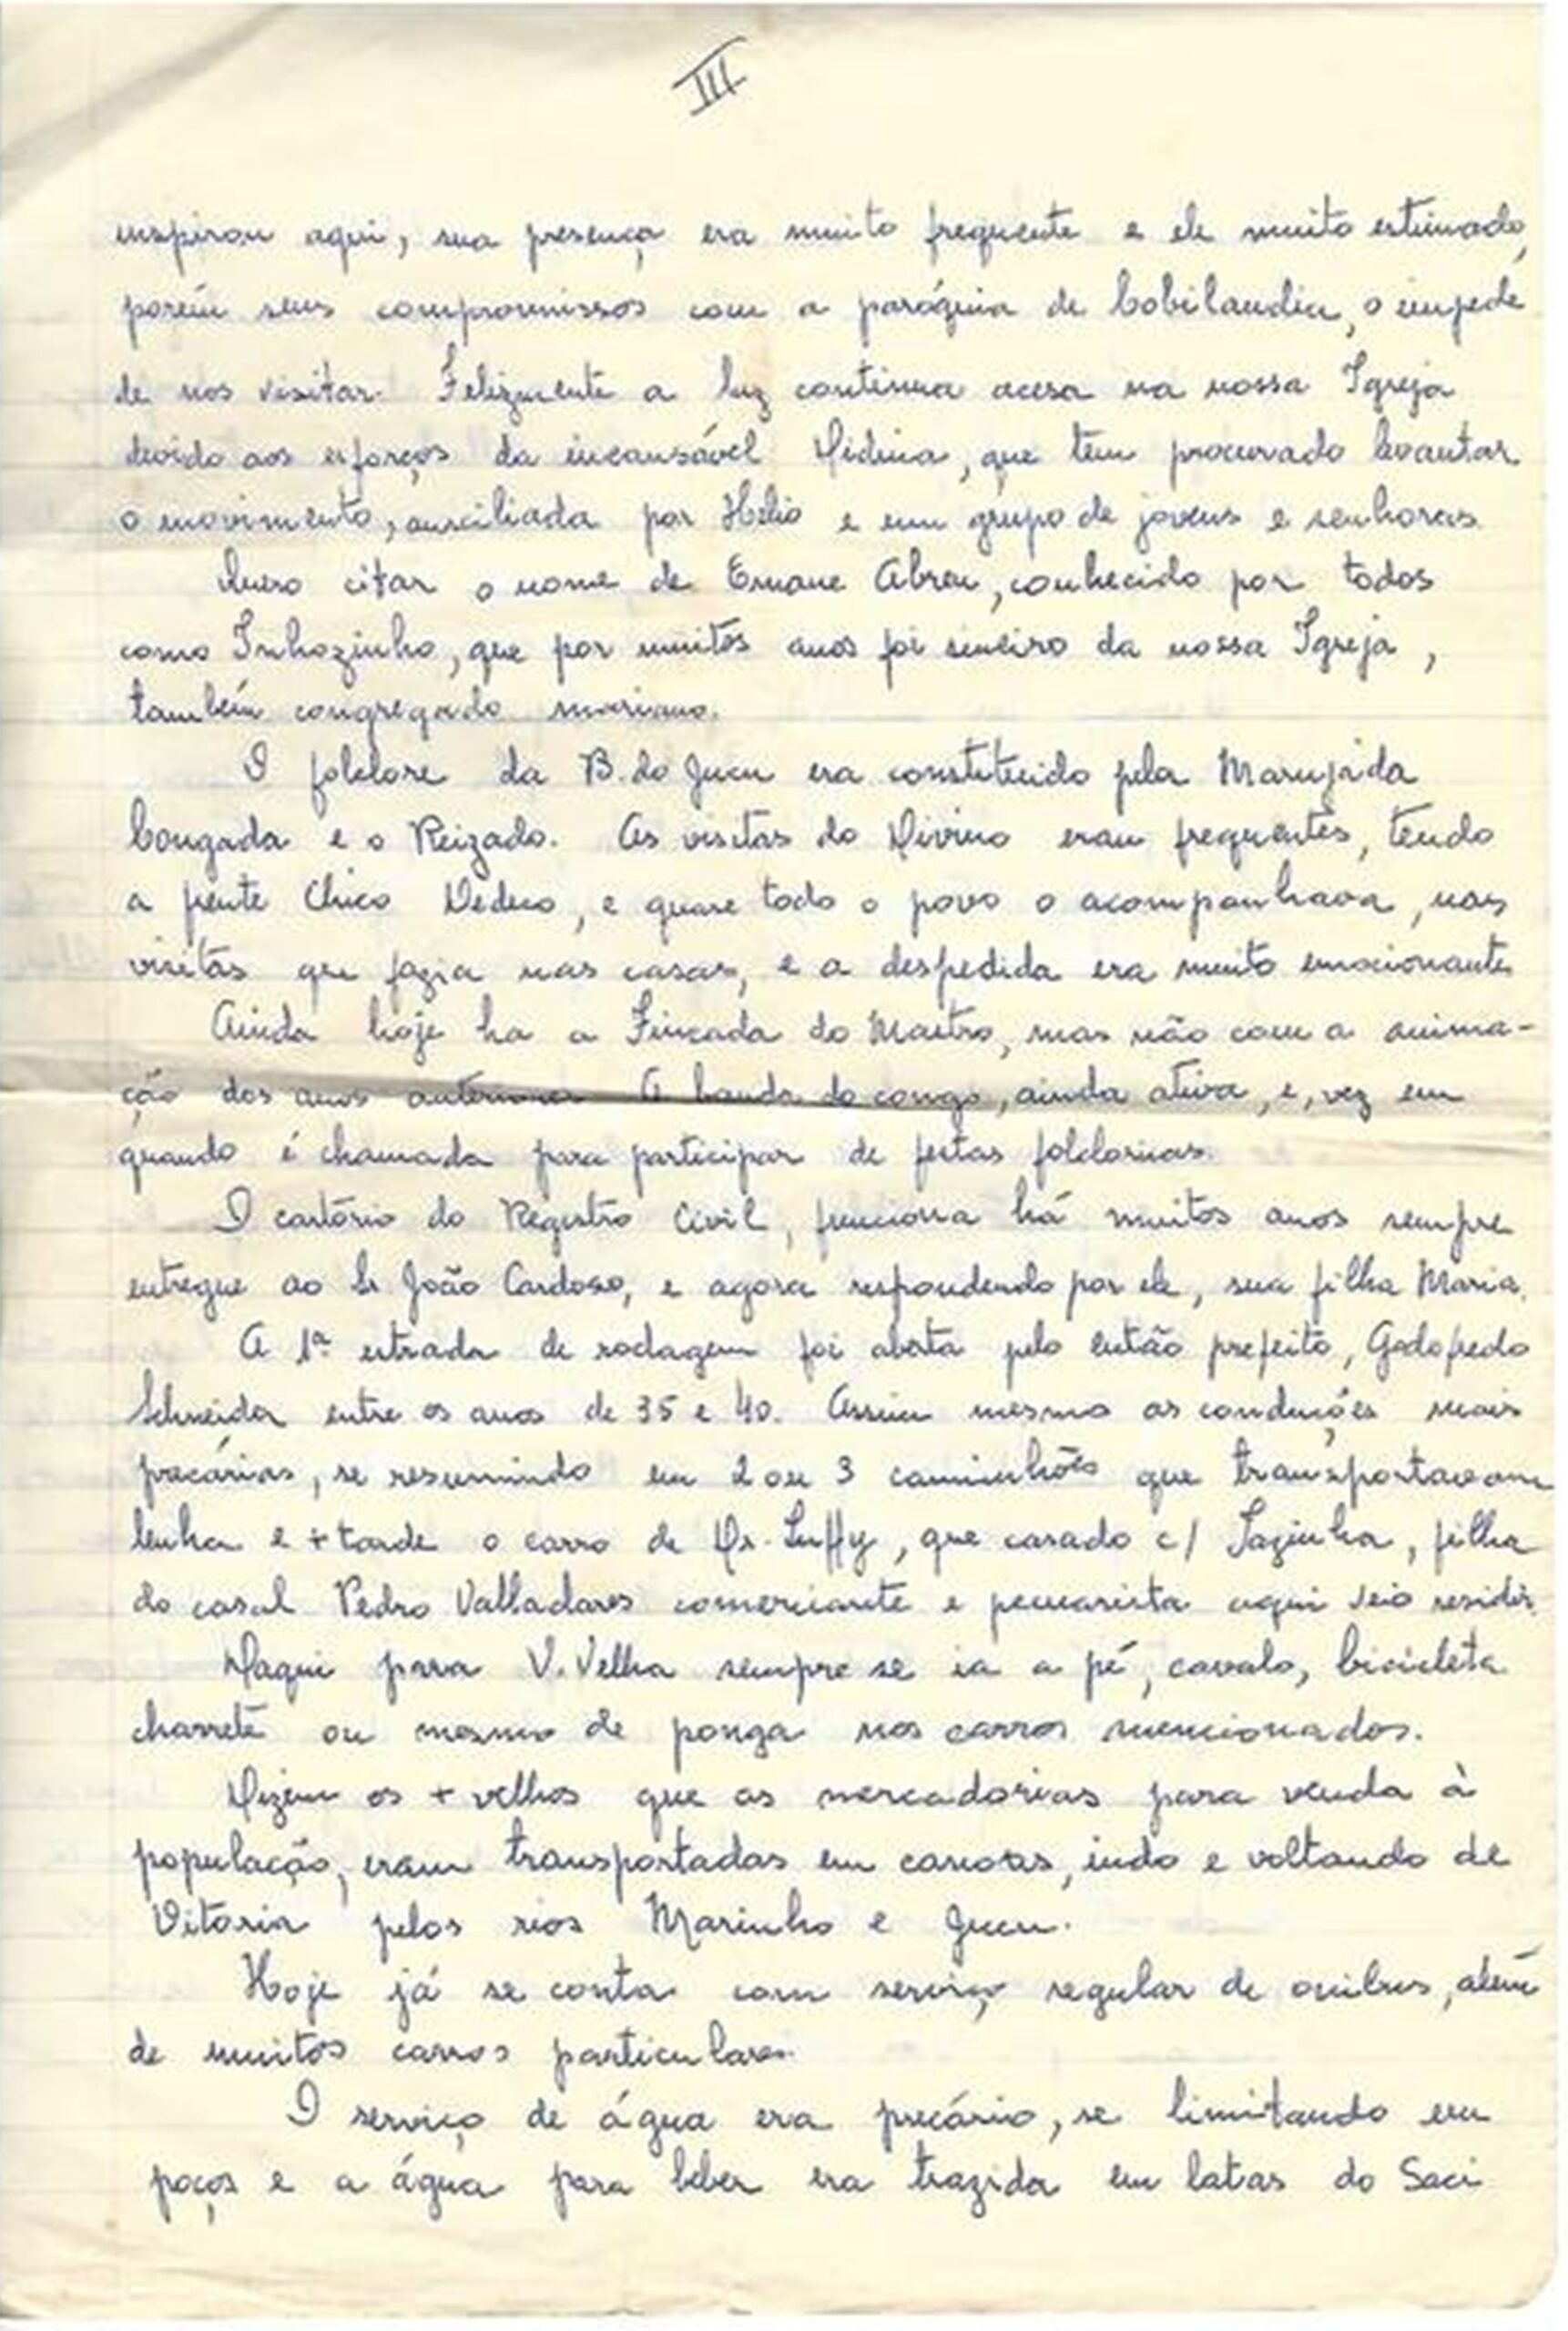 III
inspirou aqui, sua presença era muito frequente e ele muito estimado,
porém seus compromissos com a paróquia de Cobilandia, o impede
de nos visitar. Felizmente a luz continua acesa na nossa Igreja
devido aos esforços da incansável Didina, que tem procurado levantar
o movimento, auxiliada por Hélio e um grupo de jovens e senhoras.
Quero citar o nome de Ernane Abreu, conhecido por todos
como Inhozinho, que por muitos anos foi sineiro da nossa Igreja,
também congregado mariano.
O folclore da B. do Jucu era constituido pela Marujada
Congada e o Reizado. As visitas do Divino eram frequentes, tendo
a frente Chico Dedeco, e quase todo o povo o acompanhava, nas
visitas que fazia nas casas, e a despedida era muito emocionante.
Ainda hoje ha a Fincada do Mastro, mas não com a anima-
ção dos anos anteriores A banda do congo, ainda ativa, e, vez em
quando é chamada para participar de festas folcloricas.
O cartório do Registro Civil, funciona há muitos anos sempre
entregue ao Sr João Cardoso, e agora respondendo por ele, sua filha Maria.
A 1ª estrada de rodagem foi aberta pelo então prefeito, Godofredo
Schneider entre os anos de 35 e 40. Assim mesmo as conduções mais
precárias, se resumindo em 2 ou 3 caminhões que transportavam
lenha e + tarde o carro de Dr. Luffy, que casado c/ Zazinha, filha
do casal Pedro Valladares comerciante e pecuarista aqui veio residir.
Daqui para V. Velha sempre se ia a pé, cavalo, bicicleta
charrete ou mesmo de ponga nos carros mencionados.
Dizem os + velhos que as mercadorias para venda à
população, eram transportadas em canoas, indo e voltando de
Vitoria pelos rios Marinho e Jucu.
Hoje já se conta com serviço regular de onibus, além
de muitos carros particulares.
O serviço de água era precário, se limitando em
poços e a água para beber era trazida em latas do Saci